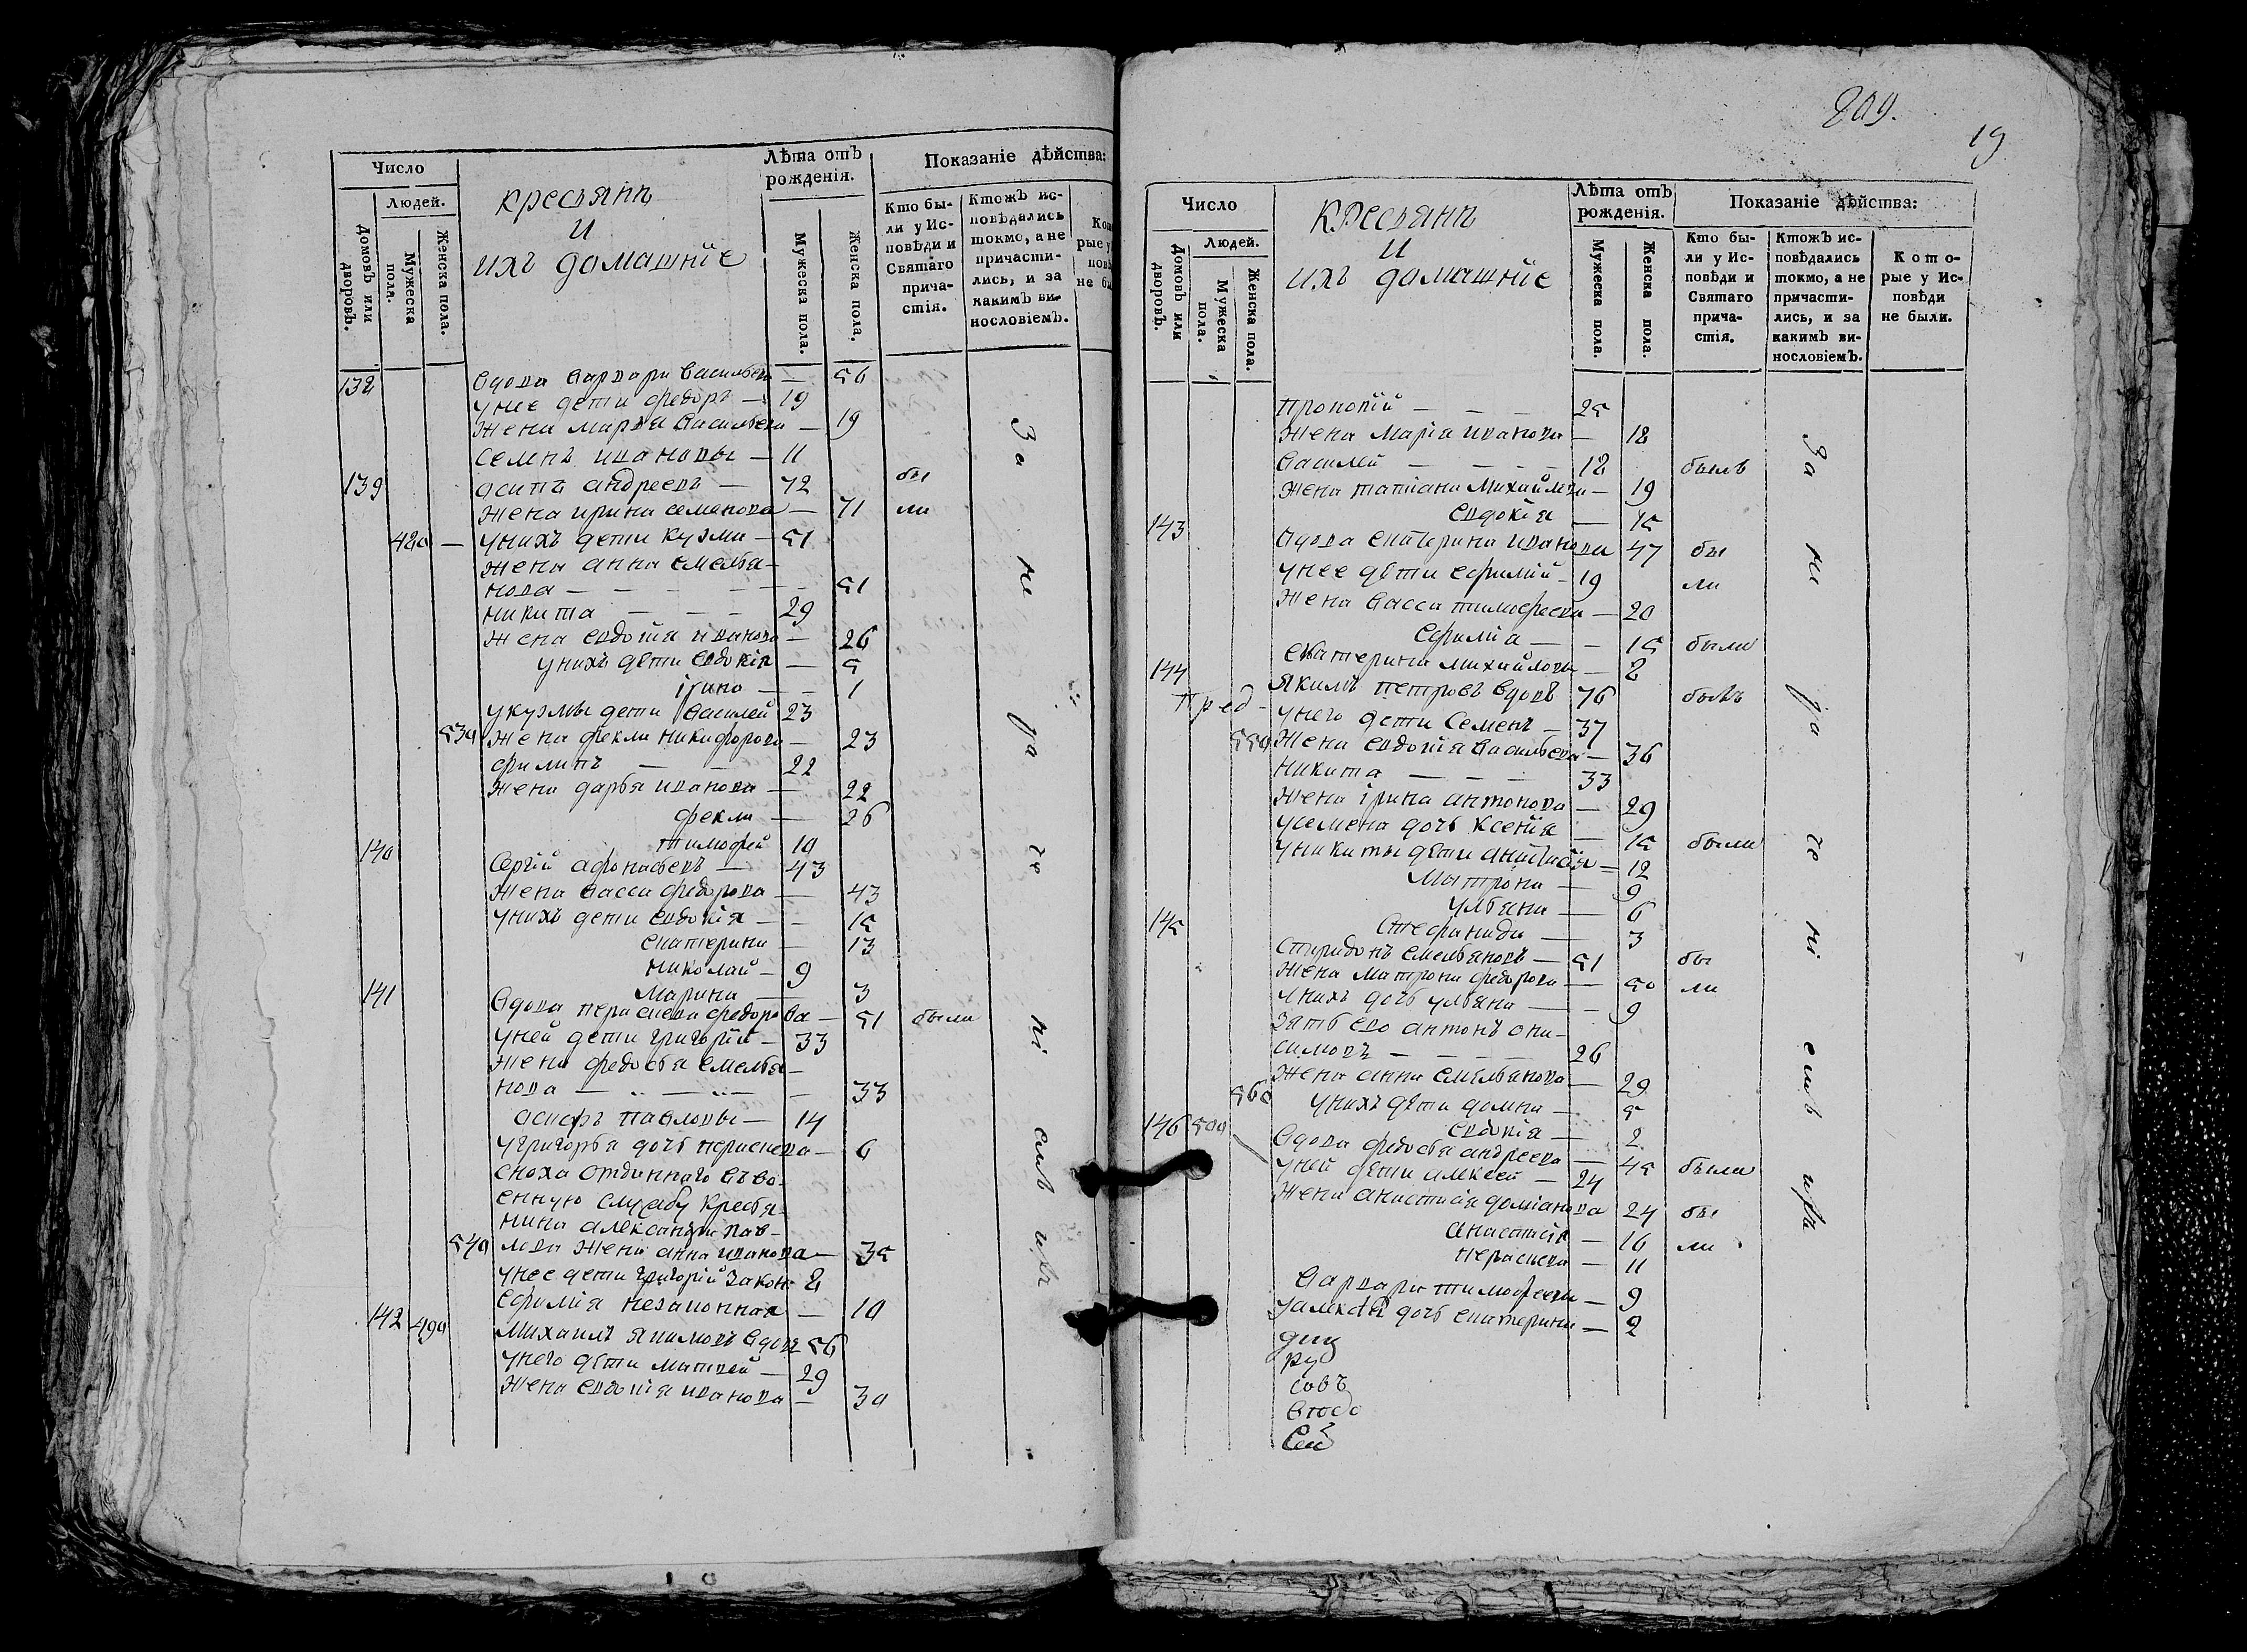 Число
Людей.
Домовъ или дворовъ.
Мужеска пола.
Женска пола.
крестьянъ
и
ихъ домашніе
Лѣта отъ рожденія.
Мужеска пола.
Женска пола.
Показаніе дѣйства:
Кто бы-
ли у Ис-
повѣди и
Святаго
прича-
стія.
Ктожъ ис-
повѣдались
токмо, а не
причасти-
лись, и за
какимъ ви-
нословіемъ.
138 Вдова Варвара Васильева — 56
у нее дети Федоръ — 19
жена Марѳа Васильева — 19
Семенъ Ивановы — 11
139 Осипъ Андреевъ — 72 бы
жена Ирина Семенова — 71 ли
480 — у нихъ дети Кузма — 51
жена Анна Емелья-
нова — 51
Никита — 29
жена Евдокія Иванова — 26
у нихъ дети Евдокія — 5
Ірина — 1
у Кузмы дети Василей 23
530 жена Фекла Никифорова — 23
Филипъ — 22
жена Дарья Иванова — 22
Фекла — 26
Тимофей 10
140 Сергій Афонасьевъ — 43
жена Васса Федорова — 43
у нихъ дети Евдокія — 15
Екатерина — 13
Николай — 9
Марина — 3
141 Вдова Пераскева Федорова — 51 были
у ней дети Григорій — 33
жена Федосья Емелья-
нова — 33
Осифъ Павловы — 14
у Григорья дочь Пераскева — 6
сноха отданнаго въ во-
енную службу крестья-
нина Александра Пав-
540 лова жена Анна Иванова — 35
у нее дети Григорій закон 2
Ефимія незаконная — 10
142 490 Михаилъ Якимовъ вдовъ 56
у него дети Матвей — 29
жена Евдокія Иванова — 30
За не ја че ні емъ ихъ
809.
19
Число
Людей.
Домовъ или дворовъ.
Мужеска пола.
Женска пола.
крестьянъ
и
ихъ домашніе
Лѣта отъ рожденія.
Мужеска пола.
Женска пола.
Показаніе дѣйства:
Кто бы-
ли у Ис-
повѣди и
Святаго
прича-
стія.
Ктожъ ис-
повѣдались
токмо, а не
причасти-
лись, и за
какимъ ви-
нословіемъ.
Кото-
рые у Ис-
повѣди
не были.
Прокопій — 25
жена Марія Иванова — 18
Василей — 18 былъ
жена Татіана Михайлова — 19
Евдокія — 15
143 Вдова Екатерина Иванова 47 бы
у нее дети Ефимій — 19 ли
жена Васса Тимофеева — 20
Ефимія — 15 были
Екатерина Михайлова — 2
144 Якимъ Петровъ вдовъ 76 былъ
у него дети Семенъ — 37
550 жена Евдокія Васильева — 36
Никита — 33
жена Ірина Антонова — 29
у Семена дочь Ксенія — 15 были
у Никиты дети Анисья — 12
Матрона — 9
Ульяна — 6
Стефанида — 3
145 Спиридонъ Емельяновъ — 51 бы
жена Матрона Федорова — 50 ли
у нихъ дочь Ульяна — 9
зять ево Антонъ Они-
симовъ — 26
жена Анна Емельянова — 29
560 у нихъ дети Домна — 5
Евдокія — 2
146 500 Вдова Федосья Андреева — 45 были
у ней дети Алексей — 24
жена Анастасія Доміанова 24 бы
Анастасія — 16 ли
Пераскева — 11
Варвара Тимофеевы — 9
у Алексея дочь Екатерина — 2
За не ја че ні емъ ихъ